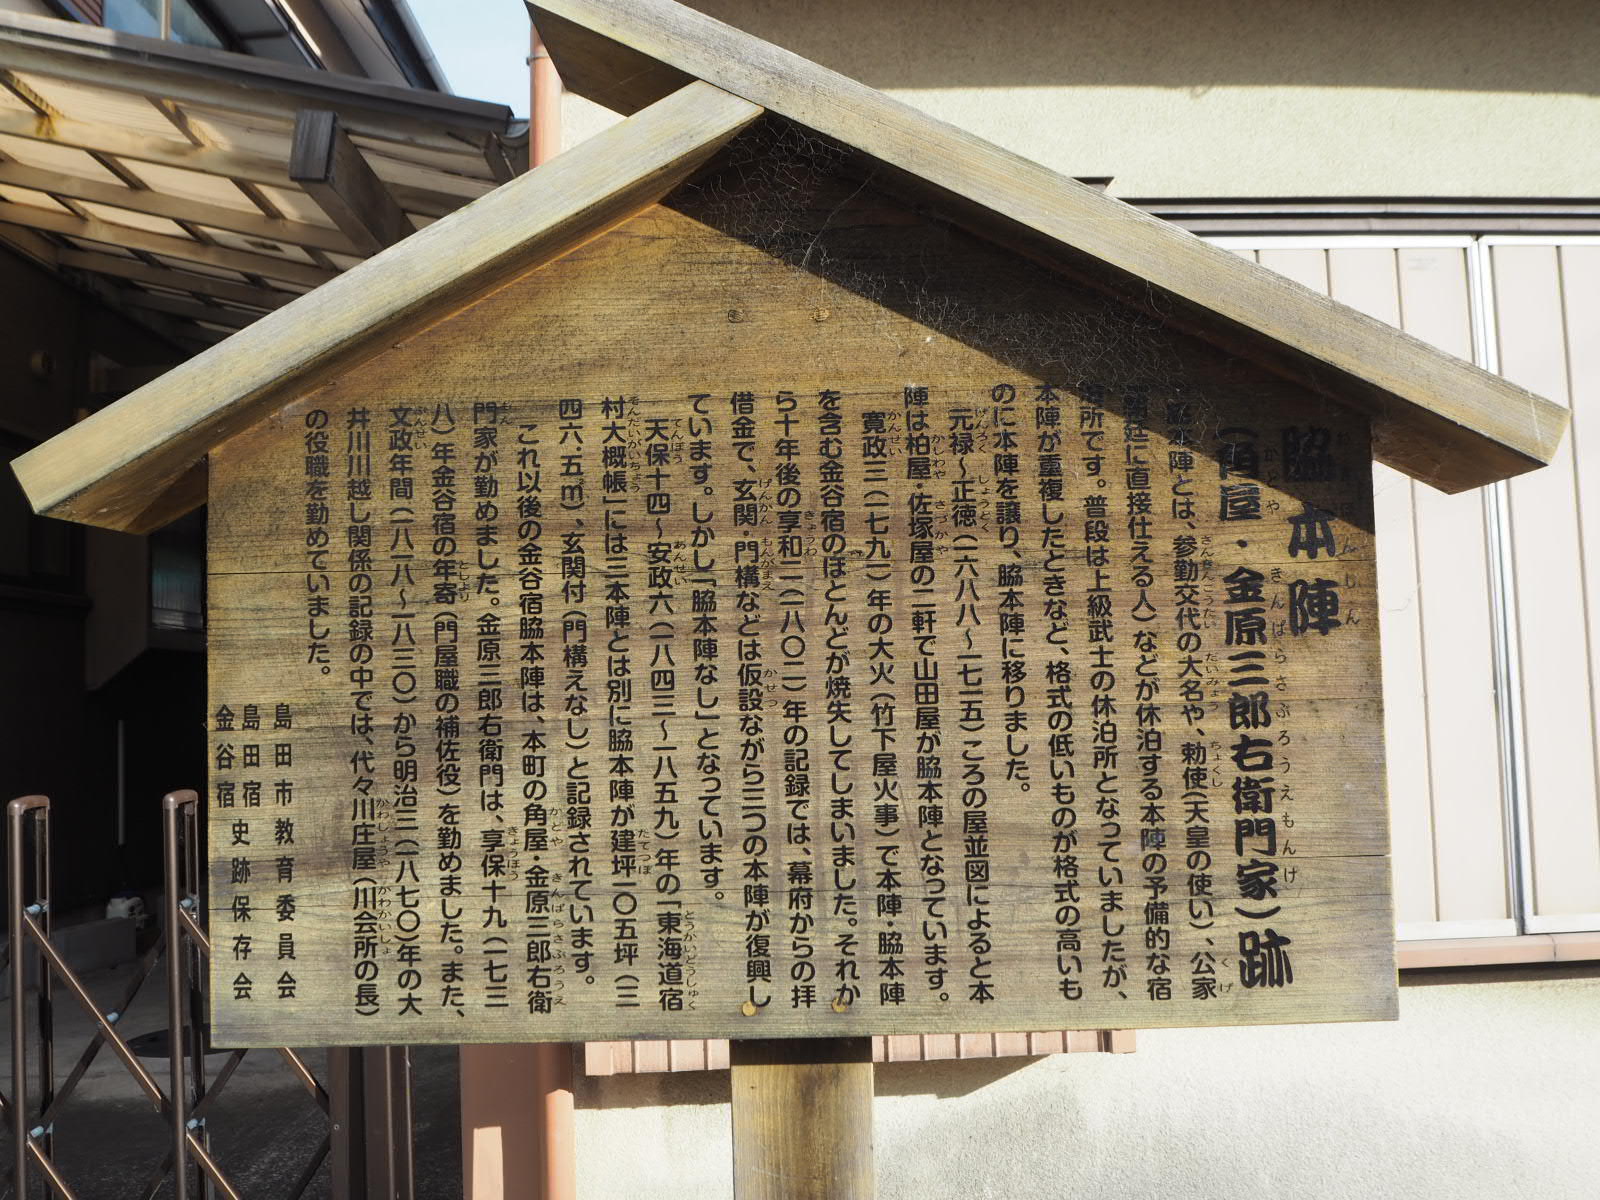 脇本陣
(角屋・金原三郎右衛門家)跡
脇本陣とは、参勤交代の大名や、勅使(天皇の使い)、公家
朝廷に直接仕える人)などが休泊する本陣の予備的な宿
泊所です。普段は上級武士の休泊所となっていましたが、
本陣が重複したときなど、格式の低いものが格式の高いも
のに本陣を譲り、脇本陣に移りました。
元禄~正徳(一六八八~一七一五)ころの屋並図によると本
陣は柏屋・佐塚屋の二軒で山田屋が脇本陣となっています。
寛政三(一七九一)年の大火(竹下屋火事)で本陣・脇本陣
を含む金谷宿のほとんどが焼失してしまいました。それか
ら十年後の享和二(一八〇二)年の記録では、幕府からの拝
借金で、玄関・門構などは仮設ながら三つの本陣が復興し
ています。しかし「脇本陣なし」となっています。
天保十四~安政六(一八四三~一八五九)年の「東海道宿
村大概帳」には三本陣とは別に脇本陣が建坪一〇五坪(三
四六.五㎡)、玄関付(門構えなし)と記録されています。
これ以後の金谷宿脇本陣は、本町の角屋・金原三郎右衛
門家が勤めました。金原三郎右衛門は、享保十九(一七三
八)年金谷宿の年寄(門屋職の補佐役)を勤めました。また、
文政年間(一八一八~一八三〇)から明治三(一八七〇)年の大
井川川越し関係の記録の中では、代々川庄屋(川会所の長)
の役職を勤めていました。
島田市教育委員会
島田宿
金谷宿 史跡保存会